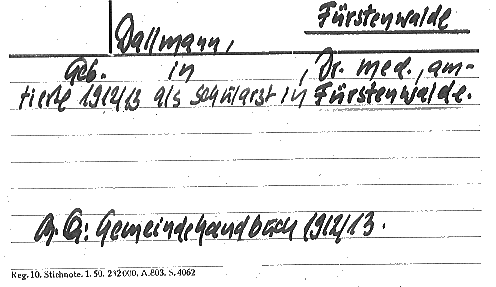 Fürstenwalde
Dallmann,
Geb. in , Dr. med., am-
tierte 1912/13 als Schularzt in Fürstenwalde.
A. Q: Gemeindehandbuch 1912/13.
Reg. 10. Stichnote. 1. 50. 232000. A.803. S. 4062